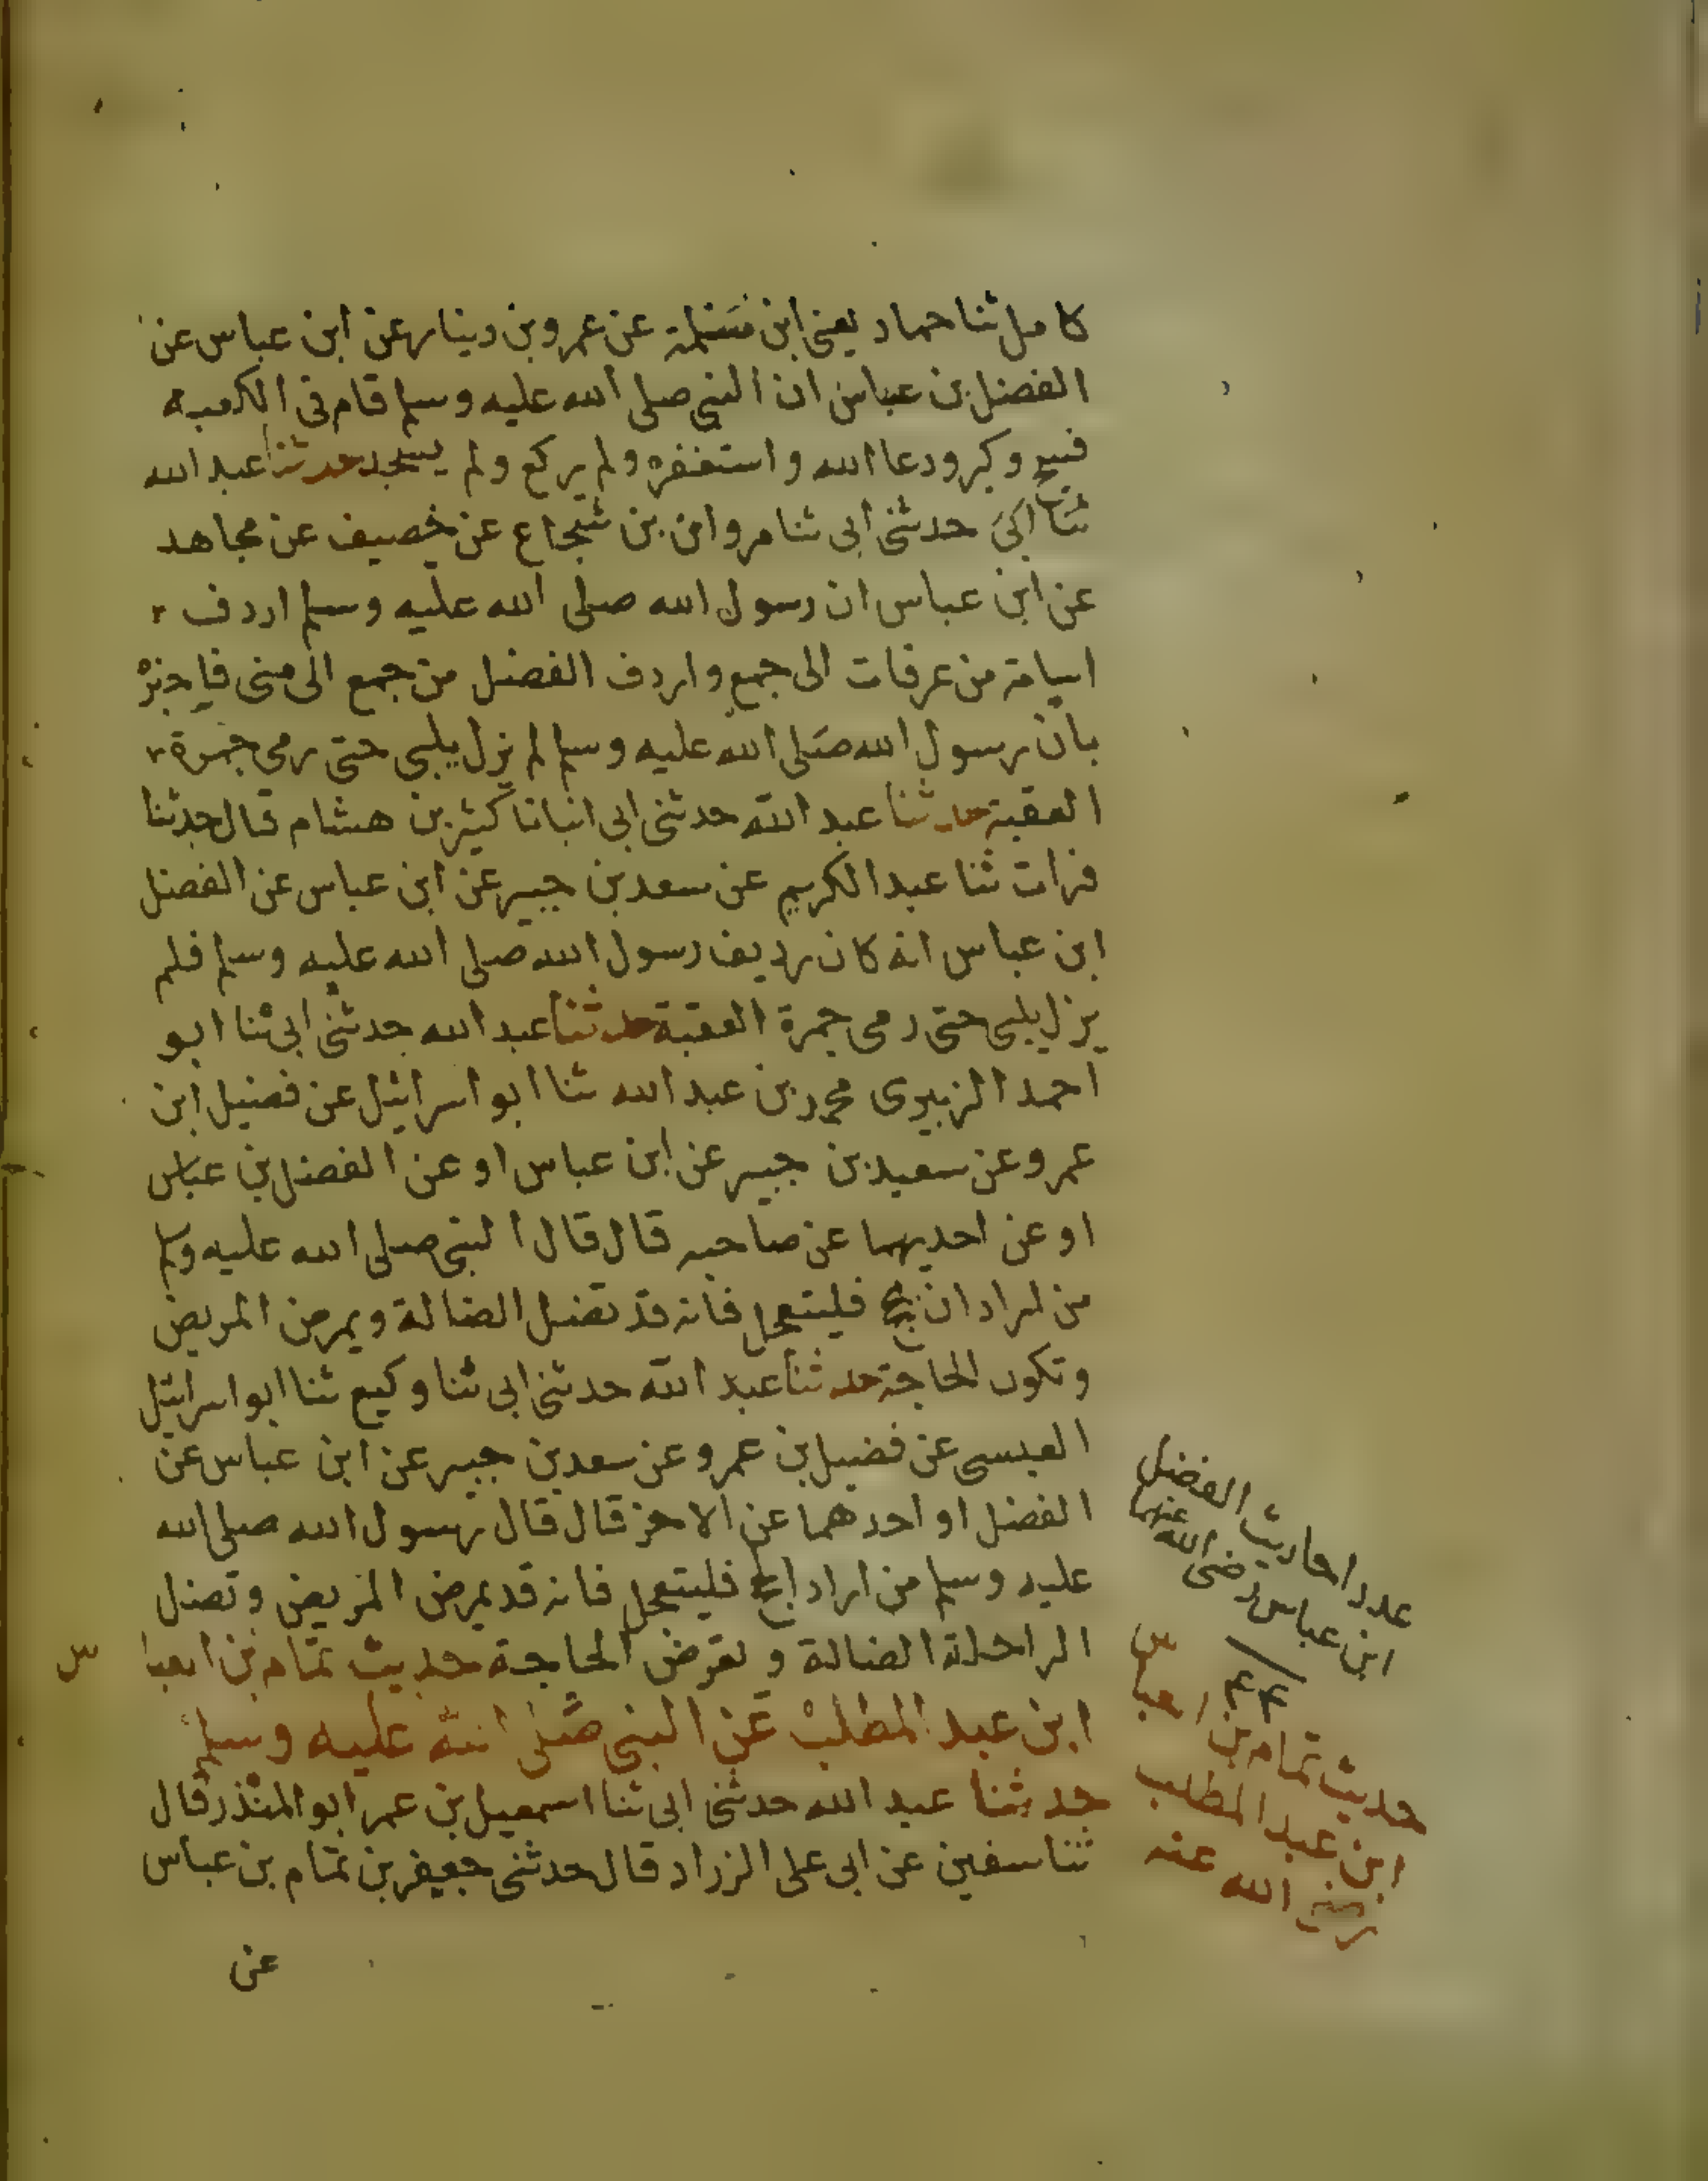 كامل ثنا حماد يعنى ابن سلمة عن عمرو بن دينار عن ابن عباس عن
الفضل بن عباس ان النبى صلى الله عليه وسلم قام فى الكعبة
فسبح وكبر ودعا الله واستغفره ولم يركع ولم يسجد حدثنا عبد الله
حدثنى ابى ثنا مروان بن شجاع عن خصيف عن مجاهد
عن ابن عباس ان رسول الله صلى الله عليه وسلم اردف
اسامة من عرفات الى جمع واردف الفضل من جمع الى منى فاخبره
بان رسول الله صلى الله عليه وسلم لم يزل يلبى حتى رمى جمرة
العقبة حدثنا عبد الله حدثنى ابى انبانا كثير بن هشام قال حدثنا
فرات ثنا عبد الكريم عن سعد بن جبير عن ابن عباس عن الفضل
ابن عباس انه كان رديف رسول الله صلى الله عليه وسلم فلم
يزل يلبى حتى رمى جمرة العقبة حدثنا عبد الله حدثنى ابى ثنا ابو
احمد الزبيرى محمد بن عبد الله ثنا ابو اسرائيل عن فضيل ابن
عمرو عن سعيد بن جبير عن ابن عباس او عن الفضل بن عباس
او عن احديهما عن صاحبه قال قال النبى صلى الله عليه وسلم
من اراد ان يحج فليتعجل فانه قد تضل الضالة ويمرض المريض
وتكون الحاجة حدثنا عبد الله حدثنى ابى ثنا وكيع ثنا ابو اسرائيل
العبسى عن فضيل بن عمرو عن سعد بن جبير عن ابن عباس عن
الفضل او احدهما عن الاخر قال قال رسول الله صلى الله
عليه وسلم من اراد الحج فليتعجل فانه قد يمرض المريض وتضل
الراحلة الضالة وتعرض الحاجة حديث تمام بن العباس
ابن عبد المطلب عن النبى صلى الله عليه وسلم
حدثنا عبد الله حدثنى ابى ثنا اسمعيل بن عمر ابو المنذر قال
ثنا سفين عن ابى على الزراد قال حدثنى جعفر بن تمام بن عباس
عن
عدد احاديث الفضل
ابن عباس رضى الله عنهما
٤٤
حديث تمام بن العباس
ابن عبد المطلب
رضى الله عنه